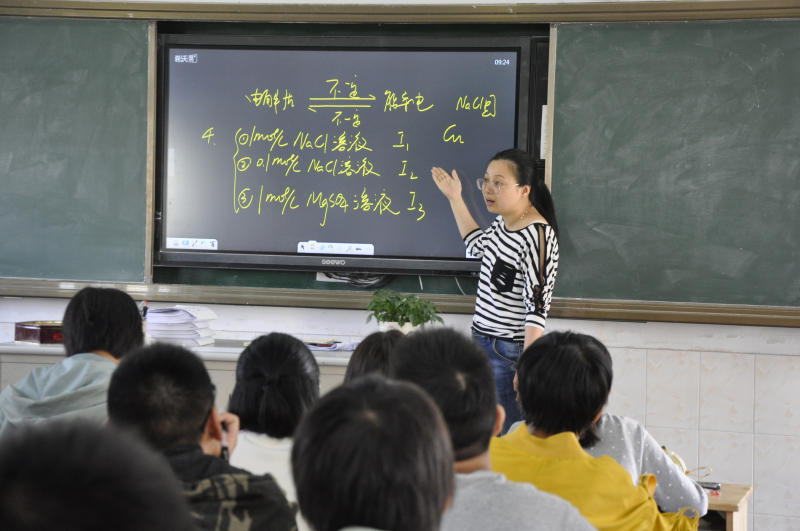 希沃 09:24
电解质 不一定 能导电 NaCl固
不一定
4. ① 1mol/L NaCl溶液 I₁ Cu
② 0.1mol/L NaCl溶液 I₂
③ 1mol/L MgSO4溶液 I₃
SEEWO